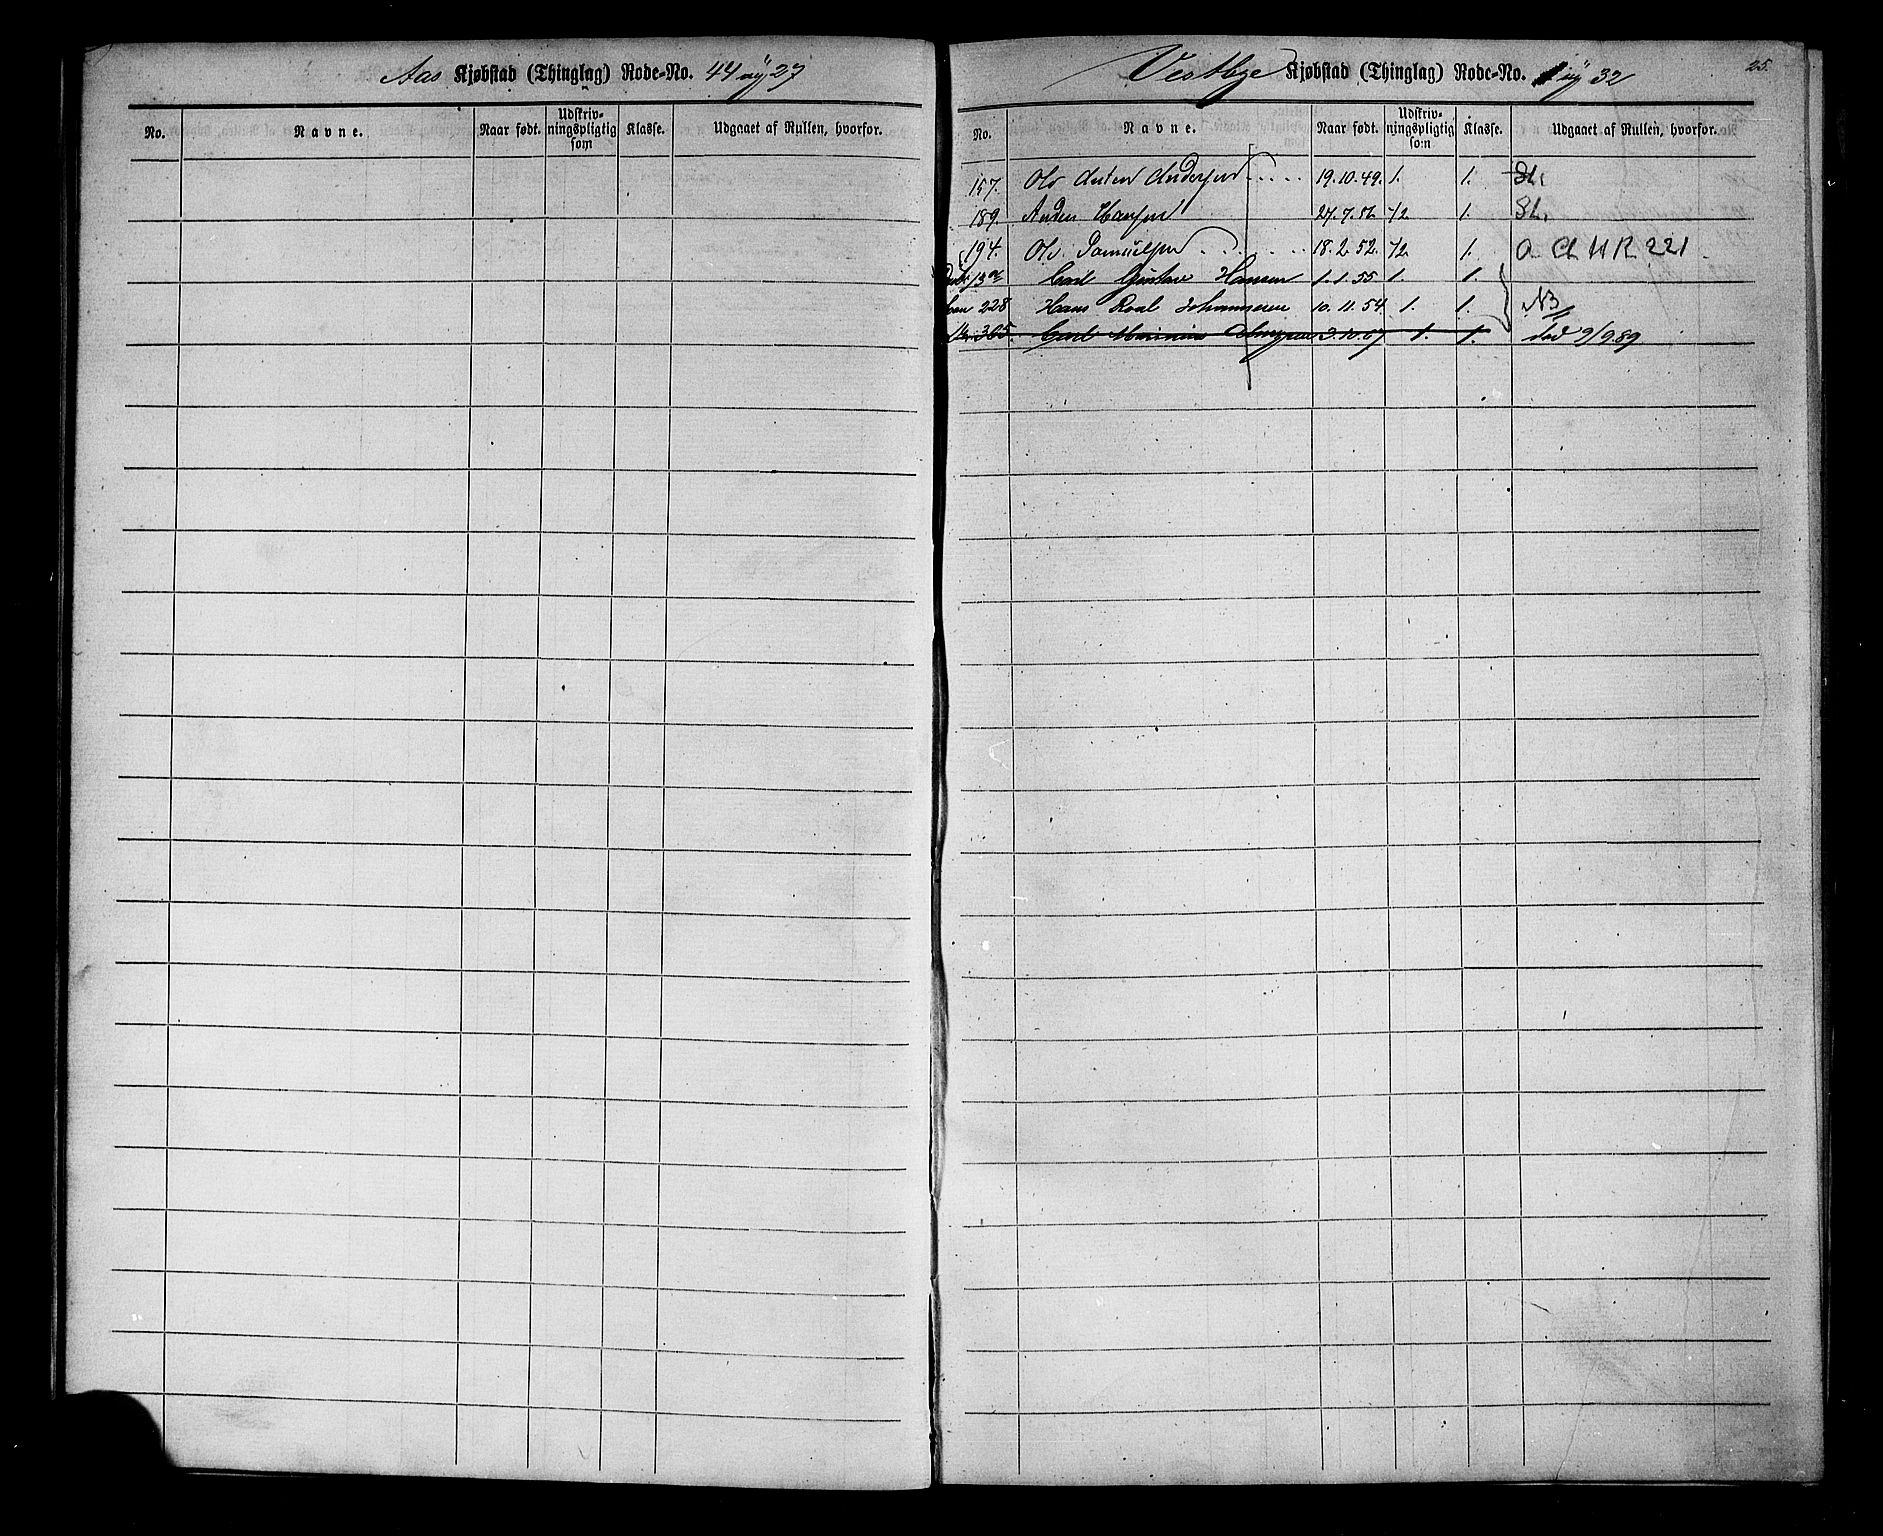 Aas Kjøbstad (Thinglag) Rode-No. 44 ny 27
No. Navne. Naar født. Udskriv-ningspligtig som Klasse. Udgaaet af Rullen, hvorfor.
Vestbye Kjøbstad (Thinglag) Rode-No. 1 ny 32
25.
No. Navne. Naar født. Udskriv-ningspligtig som Klasse. Udgaaet af Rullen, hvorfor.
157. Ole Anton Andersen 19.10.49. 1. 1. Sl.
189. Anders Hansen 27.7.56 1/2 1. Sl.
194. Ole Samuelsen 18.2.52. 1/2. 1. O. Ch H R 221
13a Carl Gustav Hansen 1.1.55 1. 1.
228 Hans Roal Johannesen 10.11.54 1. 1. NB
305. Carl Marinius 3.10.67 1. 1. død 9/9 89